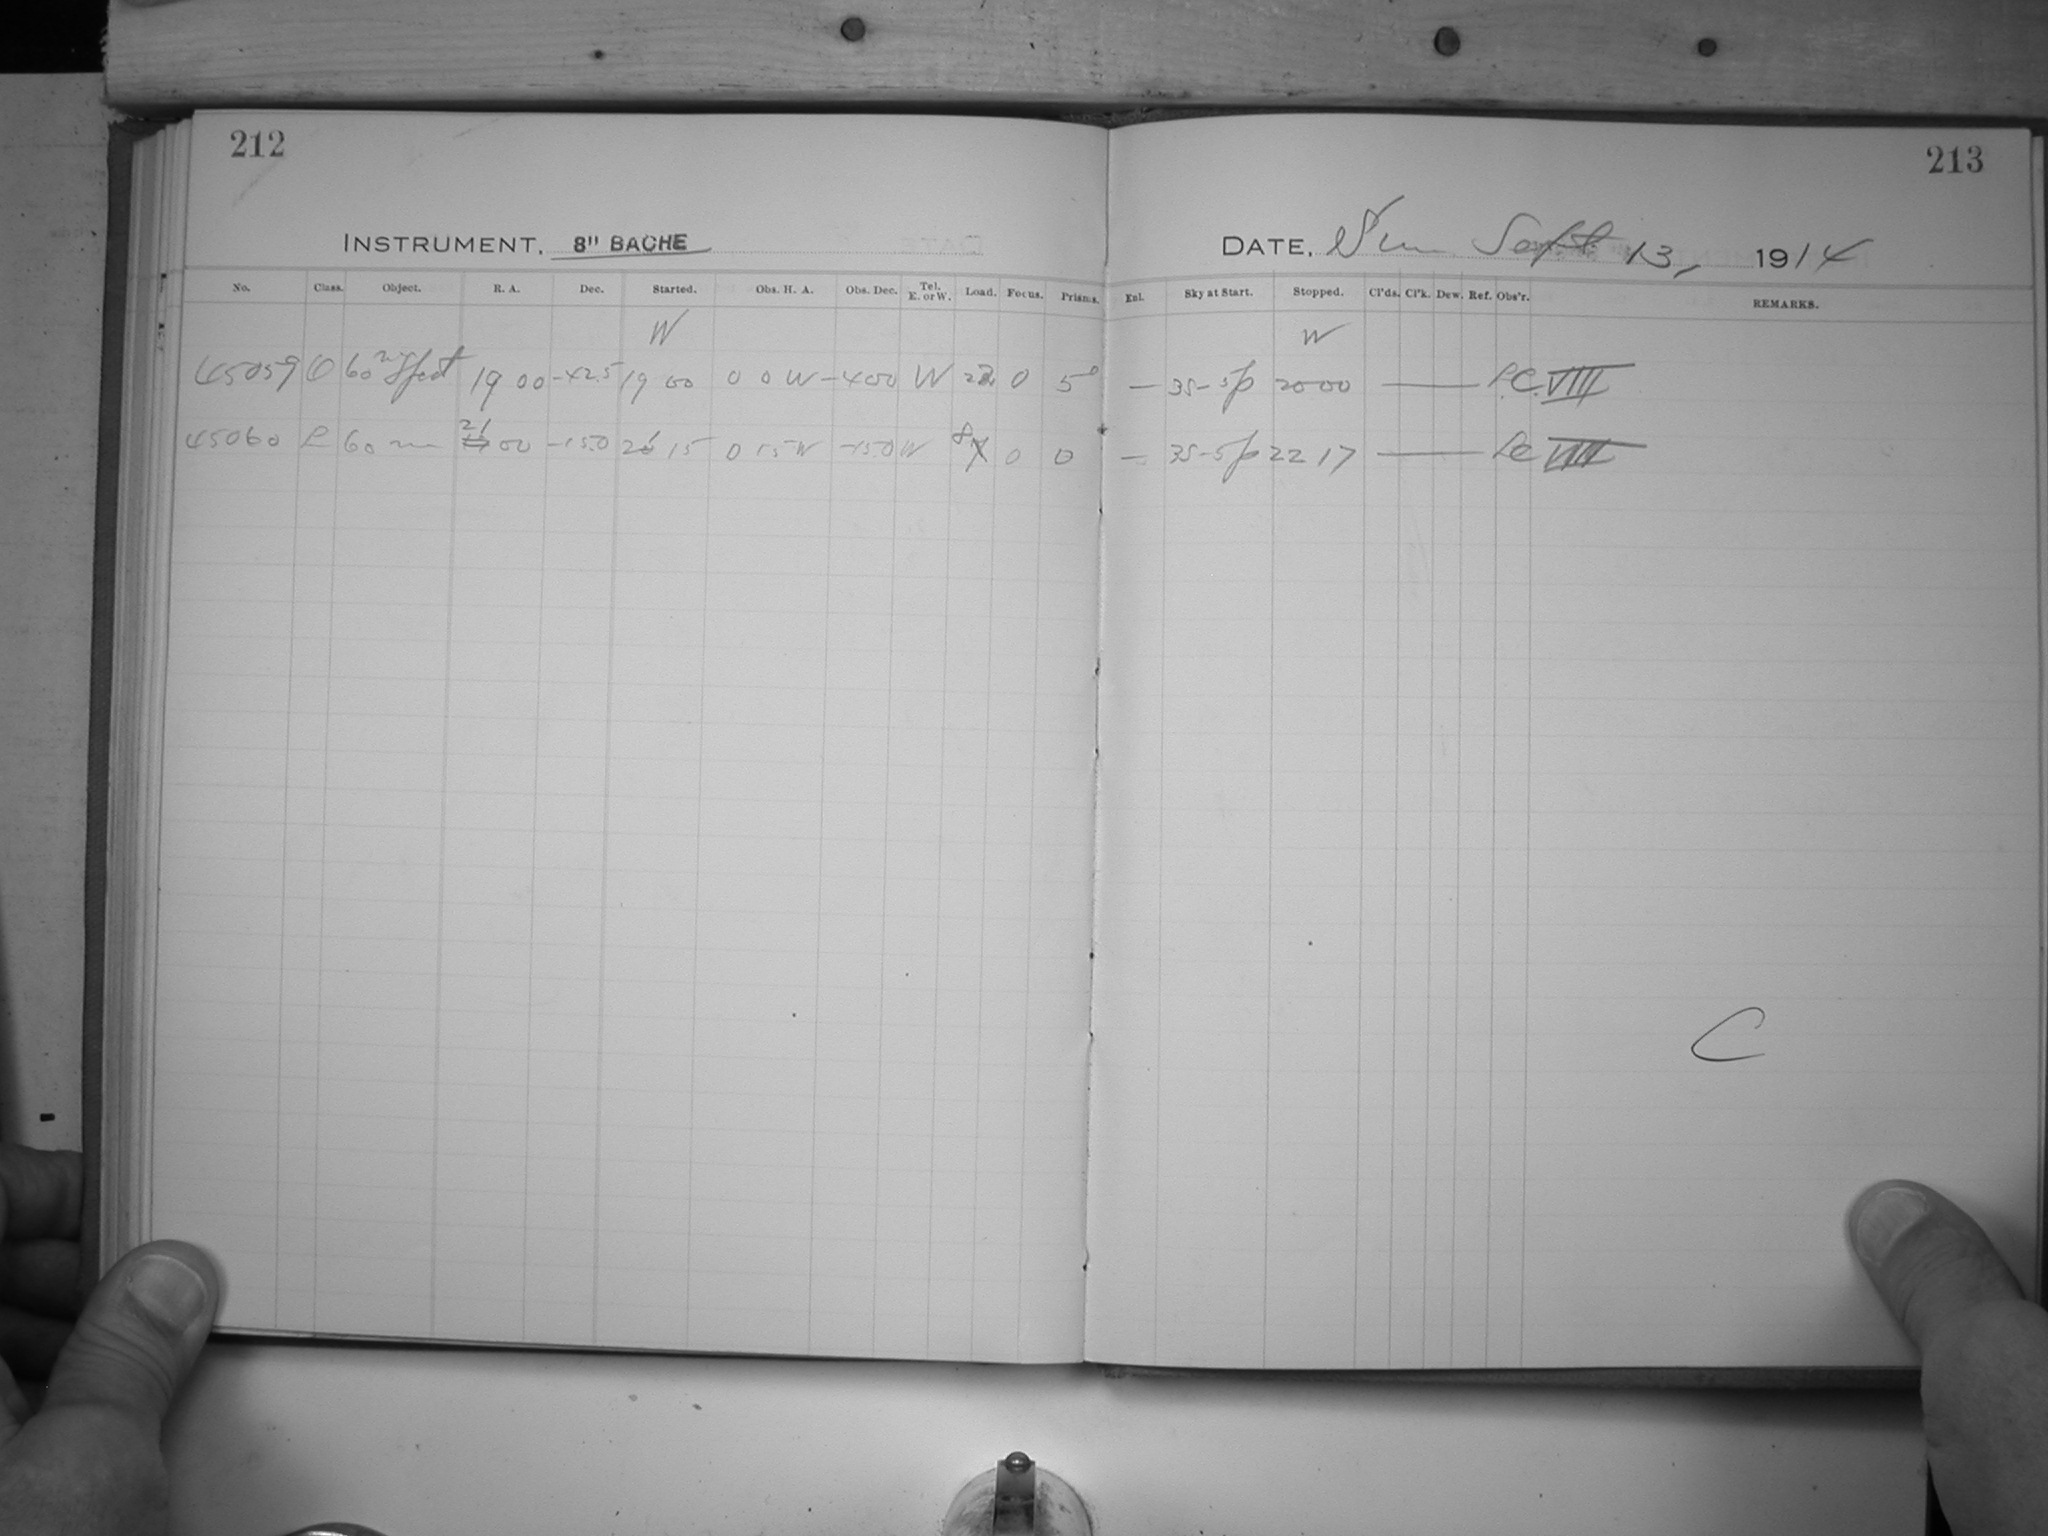 212
INSTRUMENT, 8" BACHE
No. Class. Object. R. A. Dec. Started. Obs. H. A. Obs. Dec. Tel. E. or W. Load. Focus. Prisms.
W
45059 60 19 00 -42.5 19 00 0 0 W -400 W 0 5
45060 60 m 21 00 -15.0 15 0 15 W -15.0 W 8 0 0
213
DATE, Sun Sept. 13, 1914
Enl. Sky at Start. Stopped. Cl'ds. Cl'k. Dew. Ref. Obs'r. REMARKS.
W
— 35-5p 20 00 — L.C. VIII
— 35-5p 22 17 — LC VIII
C